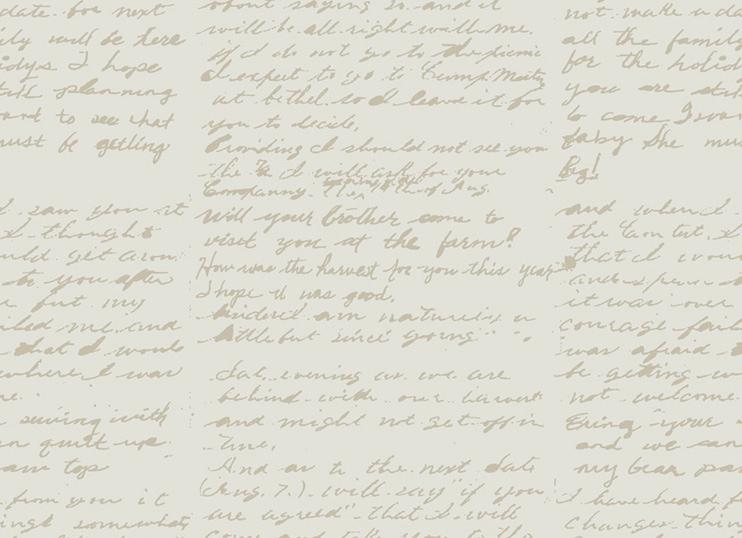 date for next
ily will be here
idys I hope
still planning
want to see what
must be getting
I saw you at
I thought
would get aroun
to you after
but my
me and
that I would
where I was
swing with
quilt up
am top
from you it
somewhat
about saying so and it
will be all right with me.
if I do not go to the picnic
I expect to go to Camp Meeting
at bethel so I leave it for
you to decide.
Providing I should not see you
the I will ask for your
Company of Aug.
Will your brother come to
visit you at the farm?
How was the harvest for you this year
I hope it was good.
little but since going
Sat. evening as we are
behind with our harvest
and might not get off in
time.
And as to the next date
(Aug. 7.) will say "if you
are agreed" that I will
come and take you to the
not make a da
all the family
for the holid
you are sti
to come I wan
baby She mu
Beg!
and when I
the Contest I
that I wou
it was over
courage fail
was afraid t
be getting w
not welcome
Bring your
and we can
my bean pa
I have heard f
changes thin